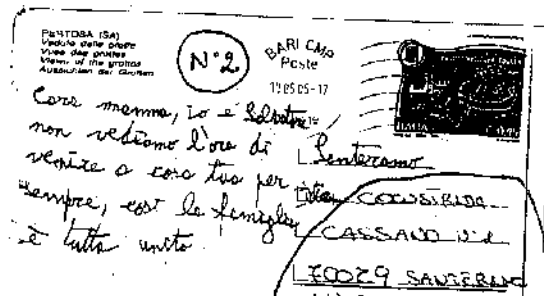 PERTOSA (SA)
Vedute delle grotte
Vues des grottes
Views of the grottos
Ausichten der Grotten
N°2
BARI CMP
Poste
05-17
Cara mamma, io e Salvatore
non vediamo l'ora di
venire a casa tua per
sempre, così la famiglia
è tutta unita
Santeramo
CASSANO N°
70029 SANTERAMO